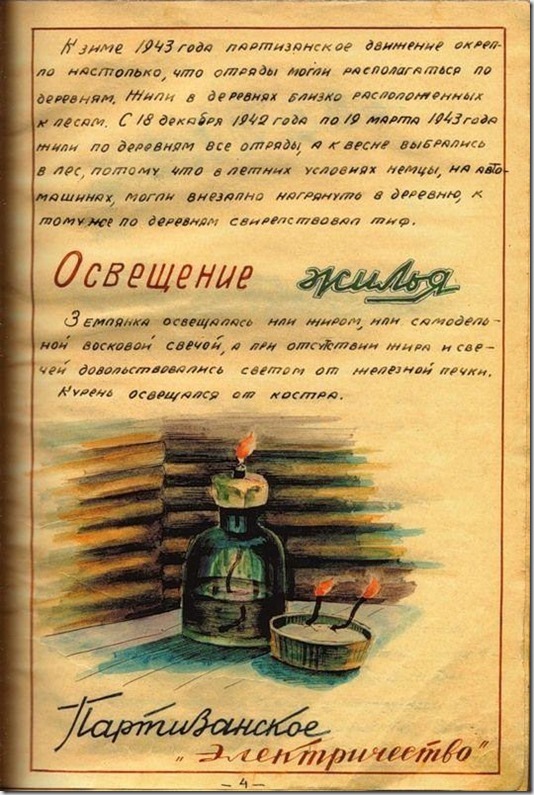 К зиме 1943 года партизанское движение окреп-
ло настолько, что отряды могли располагаться по
деревням. Жили в деревнях близко расположенных
к лесам. С 18 декабря 1942 года по 19 марта 1943 года
жили по деревням все отряды, а к весне выбрались
в лес, потому что в летних условиях немцы, на авто-
машинах, могли внезапно нагрянуть в деревню, к
тому же по деревням свирепствовал тиф.
Освещение жилья
Землянка освещалась или жиром, или самодель-
ной восковой свечой, а при отсутствии жира и све-
чей довольствовались светом от железной печки.
Курень освещался от костра.
Партизанское
"Электричество"
– 4 –